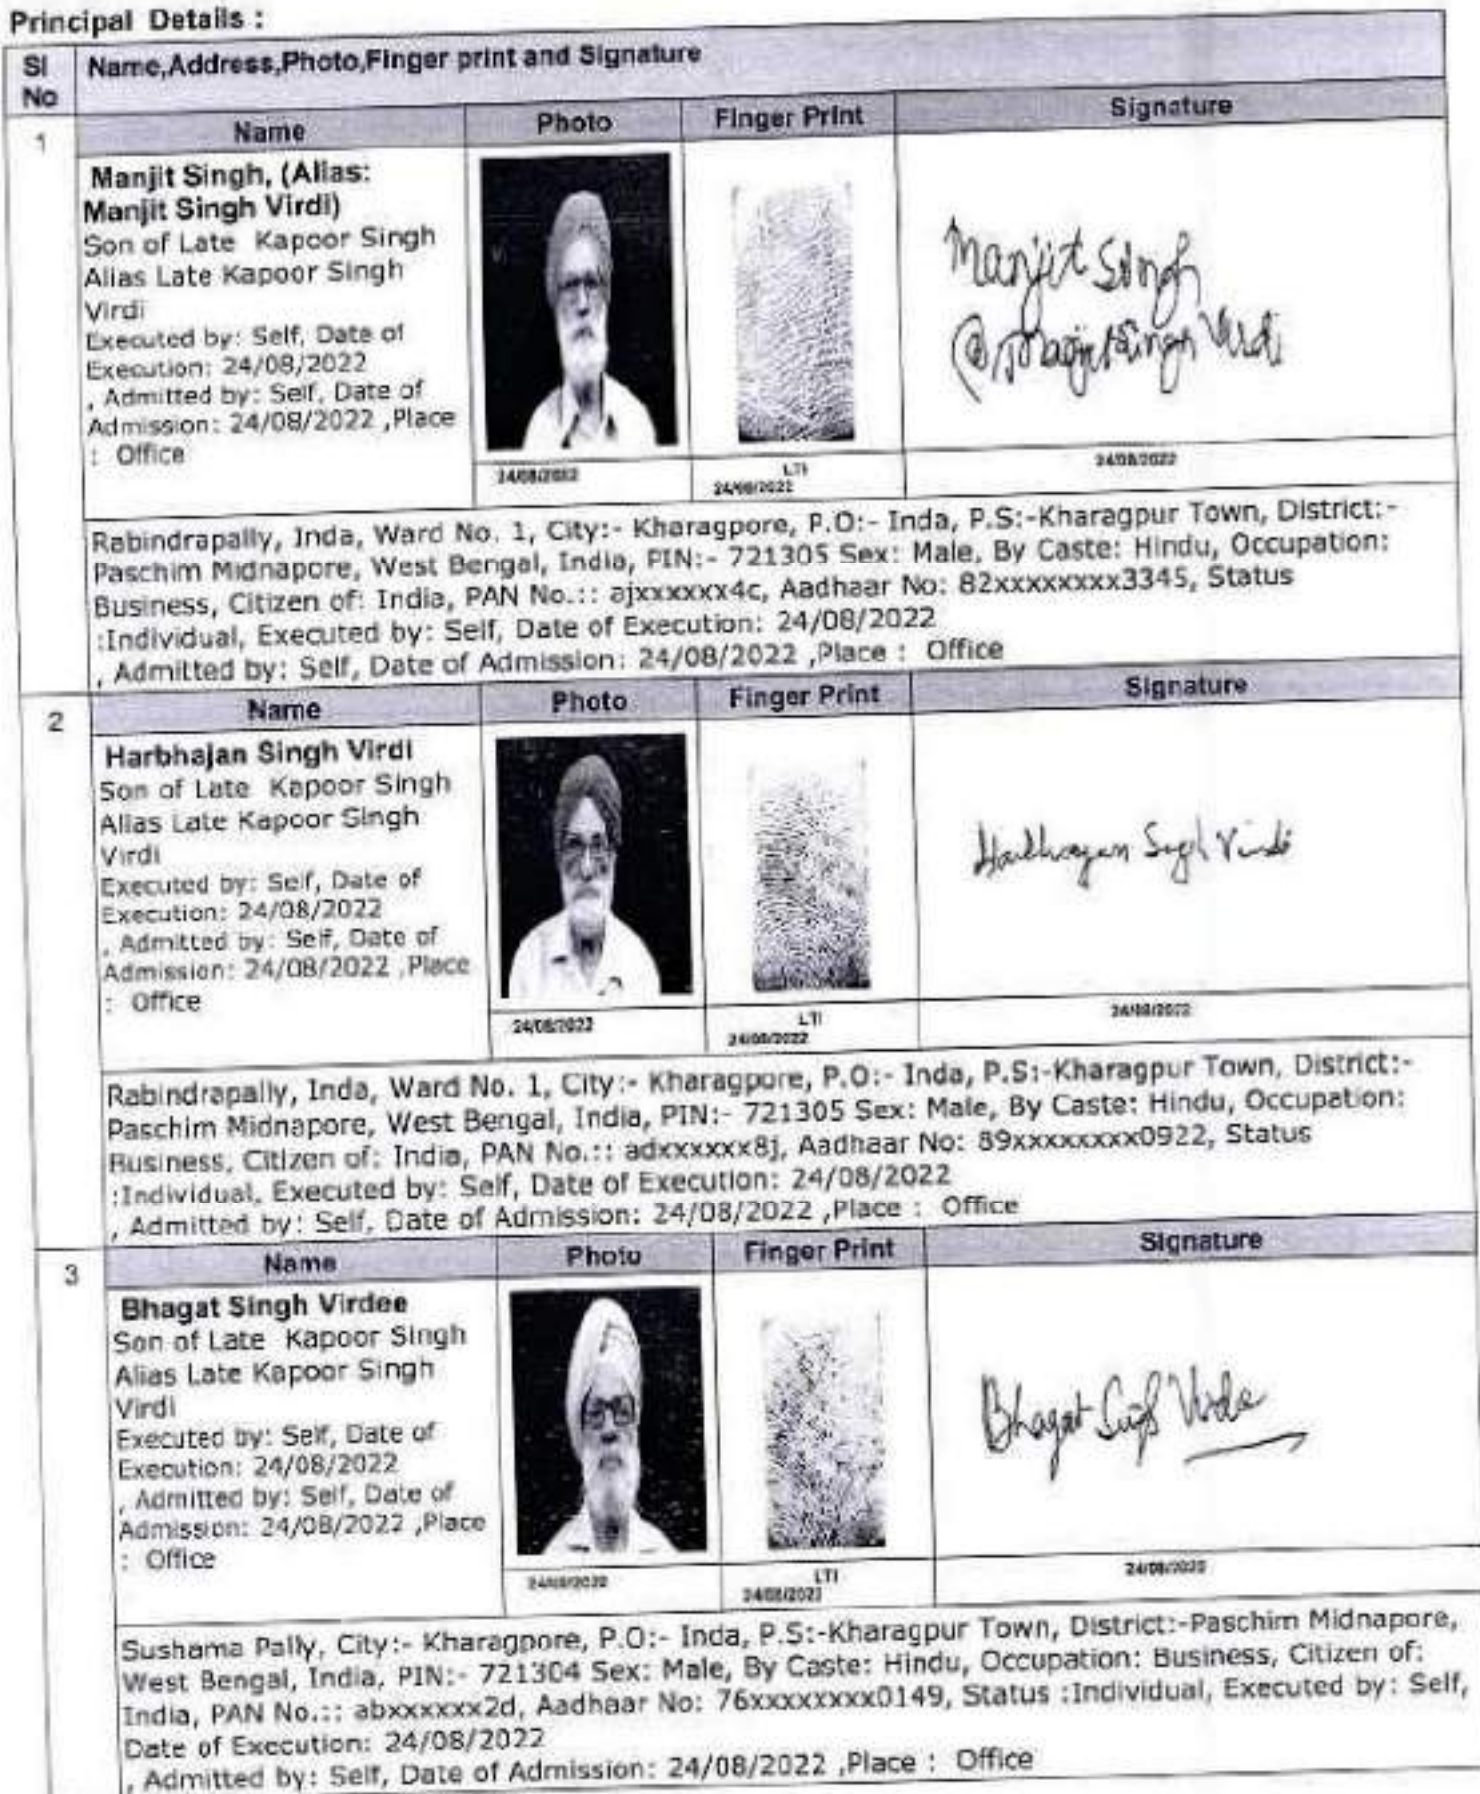 Principal Details :
Sl No
Name,Address,Photo,Finger print and Signature
1
Name
Photo
Finger Print
Signature
Manjit Singh, (Alias:
Manjit Singh Virdi)
Son of Late Kapoor Singh
Alias Late Kapoor Singh
Virdi
Executed by: Self, Date of
Execution: 24/08/2022
, Admitted by: Self, Date of
Admission: 24/08/2022 ,Place
: Office
Manjit Singh
@ Manjit Singh Virdi
24/08/2022
LTI
24/08/2022
24/08/2022
Rabindrapally, Inda, Ward No. 1, City:- Kharagpore, P.O:- Inda, P.S:-Kharagpur Town, District:-
Paschim Midnapore, West Bengal, India, PIN:- 721305 Sex: Male, By Caste: Hindu, Occupation:
Business, Citizen of: India, PAN No.:: ajxxxxxx4c, Aadhaar No: 82xxxxxxxx3345, Status
:Individual, Executed by: Self, Date of Execution: 24/08/2022
, Admitted by: Self, Date of Admission: 24/08/2022 ,Place : Office
2
Name
Photo
Finger Print
Signature
Harbhajan Singh Virdi
Son of Late Kapoor Singh
Alias Late Kapoor Singh
Virdi
Executed by: Self, Date of
Execution: 24/08/2022
, Admitted by: Self, Date of
Admission: 24/08/2022 ,Place
: Office
Harbhajan Singh Virdi
24/08/2022
LTI
24/08/2022
24/08/2022
Rabindrapally, Inda, Ward No. 1, City:- Kharagpore, P.O:- Inda, P.S:-Kharagpur Town, District:-
Paschim Midnapore, West Bengal, India, PIN:- 721305 Sex: Male, By Caste: Hindu, Occupation:
Business, Citizen of: India, PAN No.:: adxxxxxx8j, Aadhaar No: 89xxxxxxxx0922, Status
:Individual, Executed by: Self, Date of Execution: 24/08/2022
, Admitted by: Self, Date of Admission: 24/08/2022 ,Place : Office
3
Name
Photo
Finger Print
Signature
Bhagat Singh Virdee
Son of Late Kapoor Singh
Alias Late Kapoor Singh
Virdi
Executed by: Self, Date of
Execution: 24/08/2022
, Admitted by: Self, Date of
Admission: 24/08/2022 ,Place
: Office
Bhagat Singh Virdee
24/08/2022
LTI
24/08/2022
24/08/2022
Sushama Pally, City:- Kharagpore, P.O:- Inda, P.S:-Kharagpur Town, District:-Paschim Midnapore,
West Bengal, India, PIN:- 721304 Sex: Male, By Caste: Hindu, Occupation: Business, Citizen of:
India, PAN No.:: abxxxxxx2d, Aadhaar No: 76xxxxxxxx0149, Status :Individual, Executed by: Self,
Date of Execution: 24/08/2022
, Admitted by: Self, Date of Admission: 24/08/2022 ,Place : Office